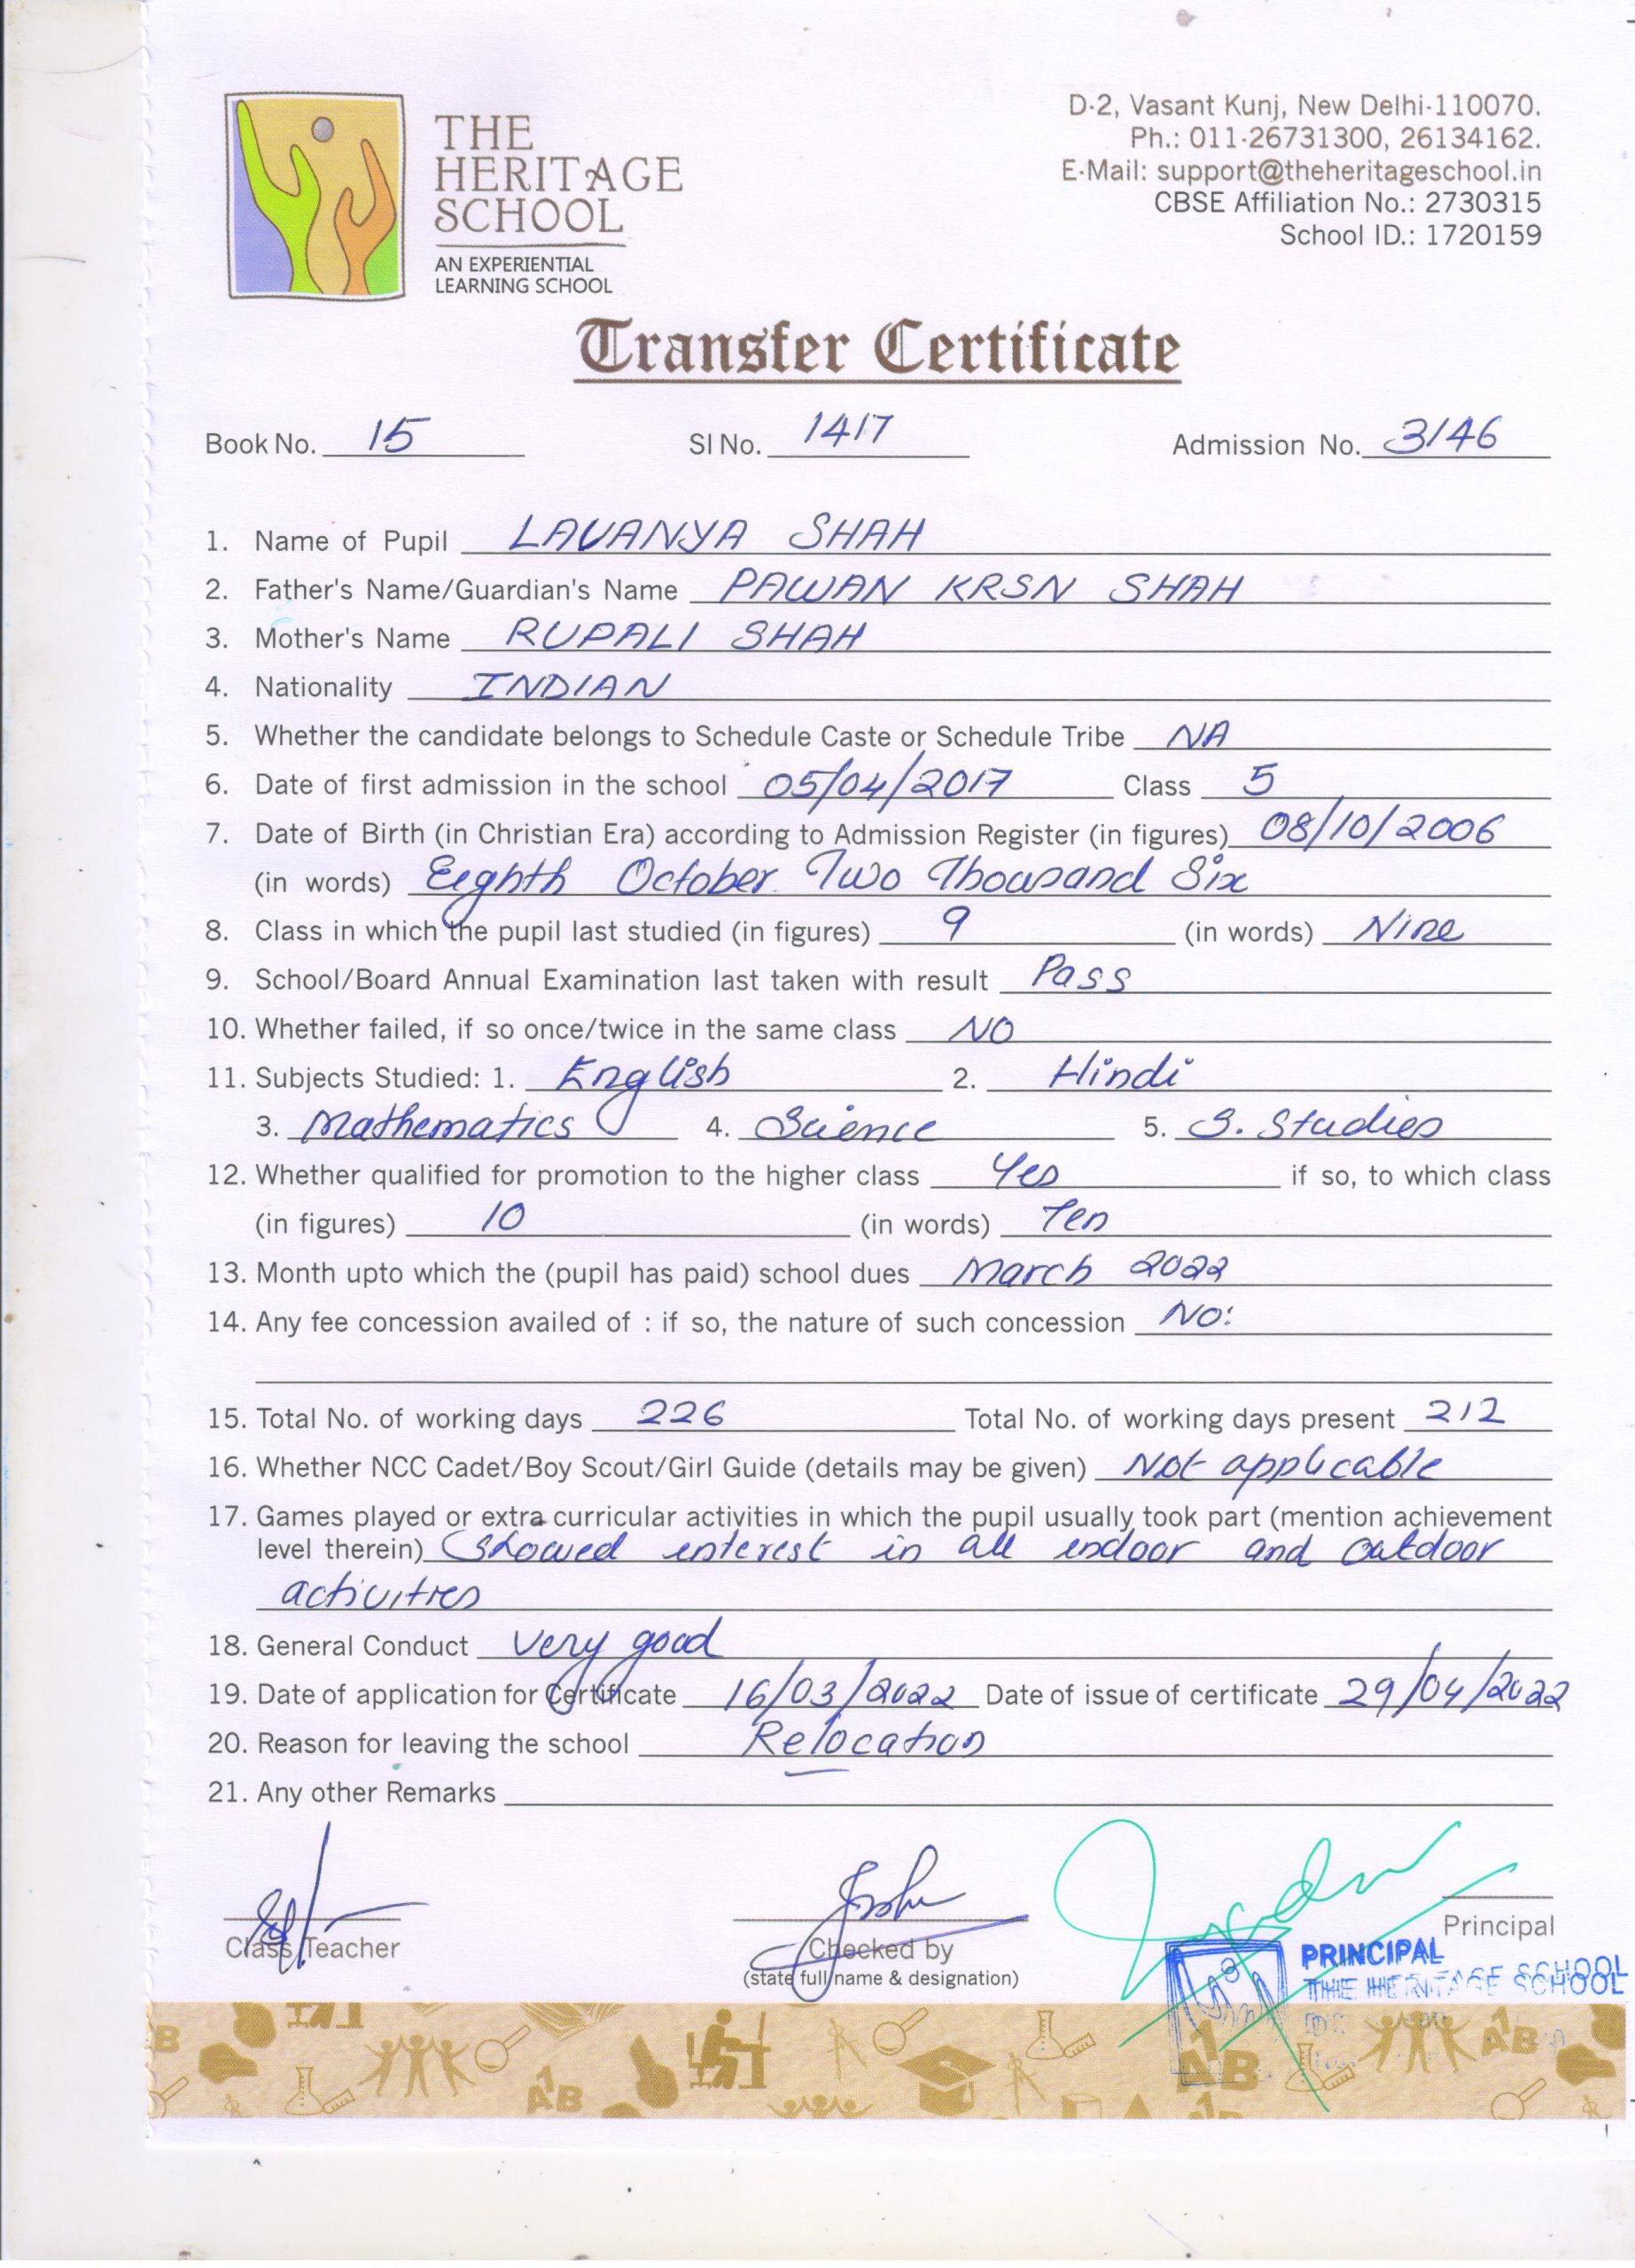 THE
HERITAGE
SCHOOL
AN EXPERIENTIAL
LEARNING SCHOOL
D-2, Vasant Kunj, New Delhi-110070.
Ph.: 011-26731300, 26134162.
E-Mail: support@theheritageschool.in
CBSE Affiliation No.: 2730315
School ID.: 1720159
Transfer Certificate
Book No. 15 Sl No. 1417 Admission No. 3146
1. Name of Pupil LAVANYA SHAH
2. Father's Name/Guardian's Name PAWAN KRSN SHAH
3. Mother's Name RUPALI SHAH
4. Nationality INDIAN
5. Whether the candidate belongs to Schedule Caste or Schedule Tribe NA
6. Date of first admission in the school 05/04/2017 Class 5
7. Date of Birth (in Christian Era) according to Admission Register (in figures) 08/10/2006
(in words) Eighth October Two Thousand Six
8. Class in which the pupil last studied (in figures) 9 (in words) Nine
9. School/Board Annual Examination last taken with result Pass
10. Whether failed, if so once/twice in the same class NO
11. Subjects Studied: 1. English 2. Hindi
3. Mathematics 4. Science 5. S. Studies
12. Whether qualified for promotion to the higher class Yes if so, to which class
(in figures) 10 (in words) Ten
13. Month upto which the (pupil has paid) school dues March 2022
14. Any fee concession availed of : if so, the nature of such concession NO:
15. Total No. of working days 226 Total No. of working days present 212
16. Whether NCC Cadet/Boy Scout/Girl Guide (details may be given) Not applicable
17. Games played or extra curricular activities in which the pupil usually took part (mention achievement
level therein) Showed interest in all indoor and outdoor
activities
18. General Conduct very good
19. Date of application for Certificate 16/03/2022 Date of issue of certificate 29/04/2022
20. Reason for leaving the school Relocation
21. Any other Remarks
Class Teacher
Checked by
(state full name & designation)
Principal
PRINCIPAL
THE HERITAGE SCHOOL